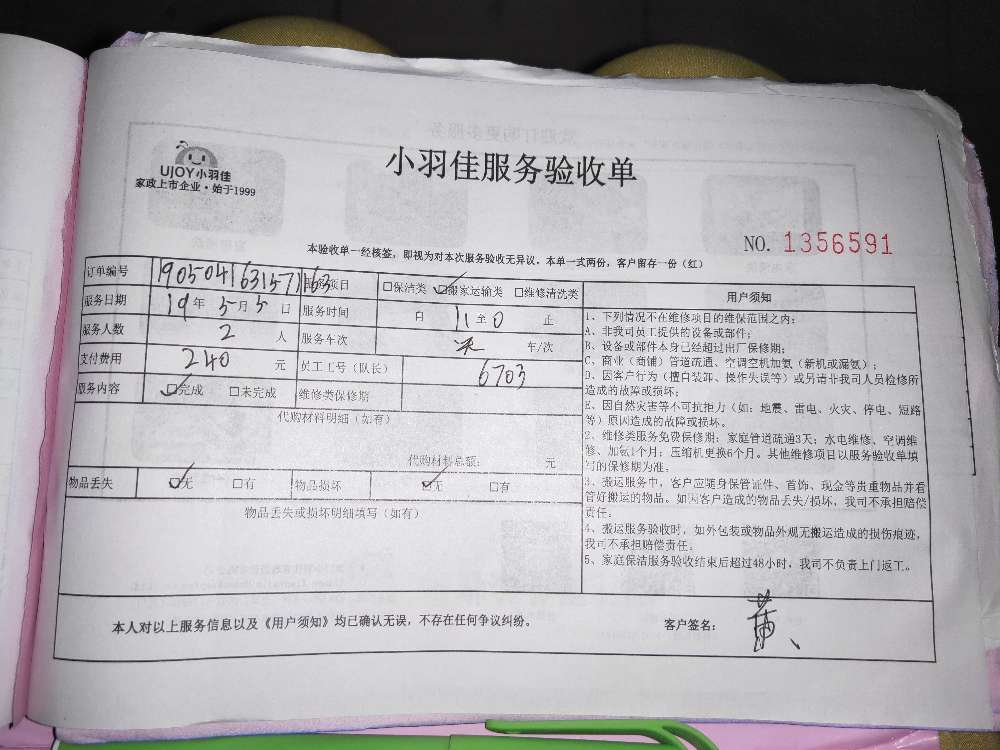 UJOY小羽佳
家政上市企业·始于1999
小羽佳服务验收单
NO. 1356591
本验收单一经核签，即视为对本次服务验收无异议。本单一式两份，客户留存一份（红）
订单编号 190504163157163 服务项目 □保洁类 ☑搬家运输类 □维修清洗类
服务日期 19年5月5日 服务时间 自 11 至 0 止
服务人数 2 人 服务车次 车/次
支付费用 240 元 员工工号（队长） 6703
服务内容 ☑完成 □未完成 维修类保修期
代购材料明细（如有）
代购材料总额： 元
物品丢失 ☑无 □有 物品损坏 ☑无 □有
物品丢失或损坏明细填写（如有）
用户须知
1、下列情况不在维修项目的维保范围之内：
A、非我司员工提供的设备或部件；
B、设备或部件本身已经超过出厂保修期；
C、商业（商铺）管道疏通、空调空机加氨（新机或漏氨）；
D、因客户行为（擅自装卸、操作失误等）或另请非我司人员检修所
造成的故障或损坏；
E、因自然灾害等不可抗拒力（如：地震、雷电、火灾、停电、短路
等）原因造成的故障或损坏。
2、维修类服务免费保修期：家庭管道疏通3天；水电维修、空调维
修、加氨1个月；压缩机更换6个月。其他维修项目以服务验收单填
写的保修期为准；
3、搬运服务中，客户应随身保管证件、首饰、现金等贵重物品并看
管好搬运的物品。如因客户造成的物品丢失/损坏，我司不承担赔偿
责任；
4、搬运服务验收时，如外包装或物品外观无搬运造成的损伤痕迹，
我司不承担赔偿责任；
5、家庭保洁服务验收结束后超过48小时，我司不负责上门返工。
本人对以上服务信息以及《用户须知》均已确认无误，不存在任何争议纠纷。
客户签名： 黄